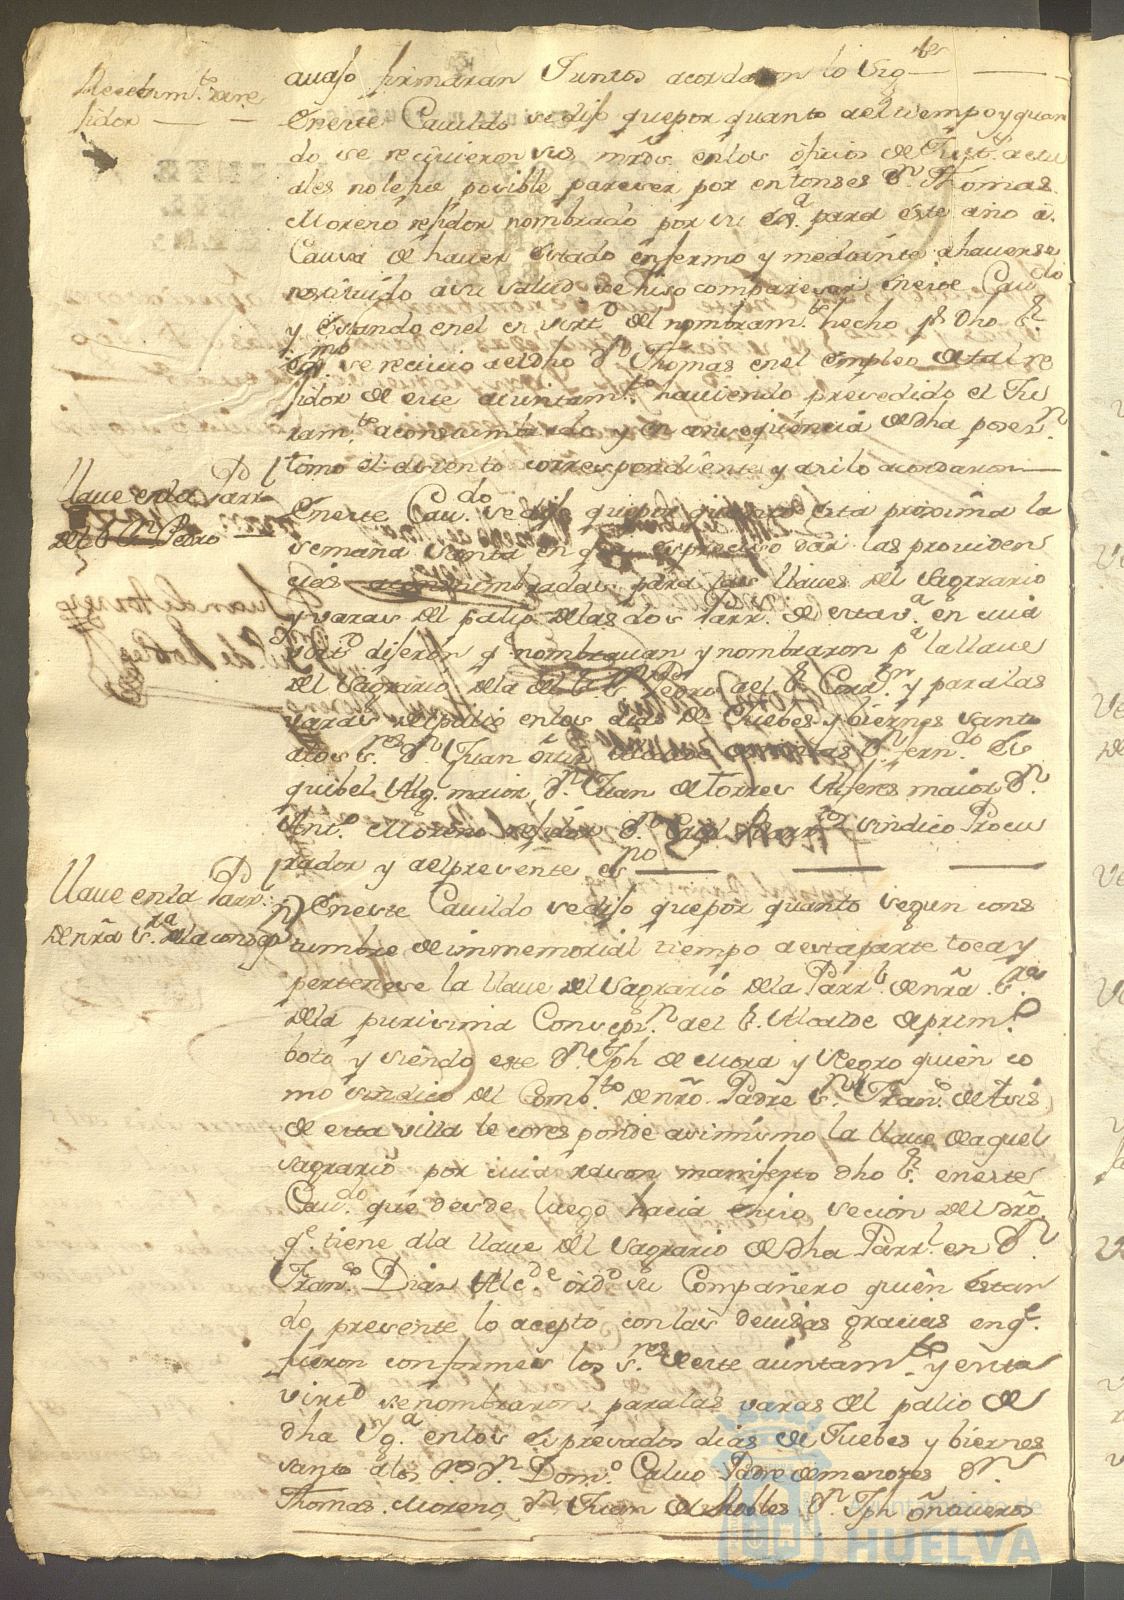 avajo firmaran Juntos acordaron lo sigte
Recebimto. de re
sidor
En este Cavildo se dijo que por quanto a el tiempo y quan
do se reciuieron sus mrds. en los ofisios de Justa. actu
ales no le fue posible pareser por entonses Dn. Thomas
Moreno residor nombrado por su Exa. para este año a
Causa de hauer estado enfermo y mediante a hauerse
restituido a su salud se hiso compareser en este Cavdo
y estando en el en virtd. del nombramto. hecho pr. dho Sr.
Exmo. se reciuio a el dho Dn. Thomas en el empleo de tal re
sidor de este aiuntamto. hauiendo presedido el Ju
ramto. acostumbrado y en consequencia de dha posen.
tomo el asiento correspondiente y asi lo acordaron
Llave en la Parrl
del Sr. Sn. Pedro
En este Cavdo. se dijo que por quanto esta proxima la
semana santa en que es presiso dar las providen
cias acostumbradas para las llaves del Sagrario
y varas del palio de las dos Parrs. de esta va. en cuia
virtd. dijeron qe. nombrauan y nombraron pa. la llave
del Sagrario de la del Sr. Sn. Pedro a el Sr. Corrxr. y para las
varas del palio en los dias de Juebes y biernes santo
a los Sres. Dn. Juan Ortiz Dn. Ferndo. Es
quibel Alg. maior Dn. Juan de Torres Alferes maior Dn.
Anto. Moreno residor Dn. sindico Procu
rador y a el presente esno
Llave en la Parrl.
de nra Sra. de la consepn
En este Cavildo se dijo que por quanto segun cons
tumbre de inmemorial tiempo a esta parte toca y
pertenese la llave del Sagrario de la Parrl. de nra. Sra.
de la purisima Consepn. a el Sr. Alcalde de primo.
boto y siendo este Dn. Jph de Mora y Negro quien co
mo sindico del Combto. de nro. Padre Sn. Frano. de Asis
de esta villa le corresponde asimismo la llave de aquel
sagrario por cuia rason manifesto dho Sr. en este
Cavdo. que desde luego hacia e hiso secion del dro.
qe. tiene a la llave del Sagrario de dha Parrl. en Dn.
Frano. Dias Alcde. ordo. su Compañero quien estan
do presente lo acepto con las deuidas gracias en qe.
fueron conformes los Sres. de este aiuntamto. y en ta
virtd se nombraron para las varas del palio de
dha Yga. en los espresados dias de Juebes y biernes
santo a los Sres. Dn. Domo. Calvo Padre de menores Dn.
Thomas Moreno, Dn. Juan de Robles Dn. Jph Ontiueros
Ayuntamiento de
HUELVA